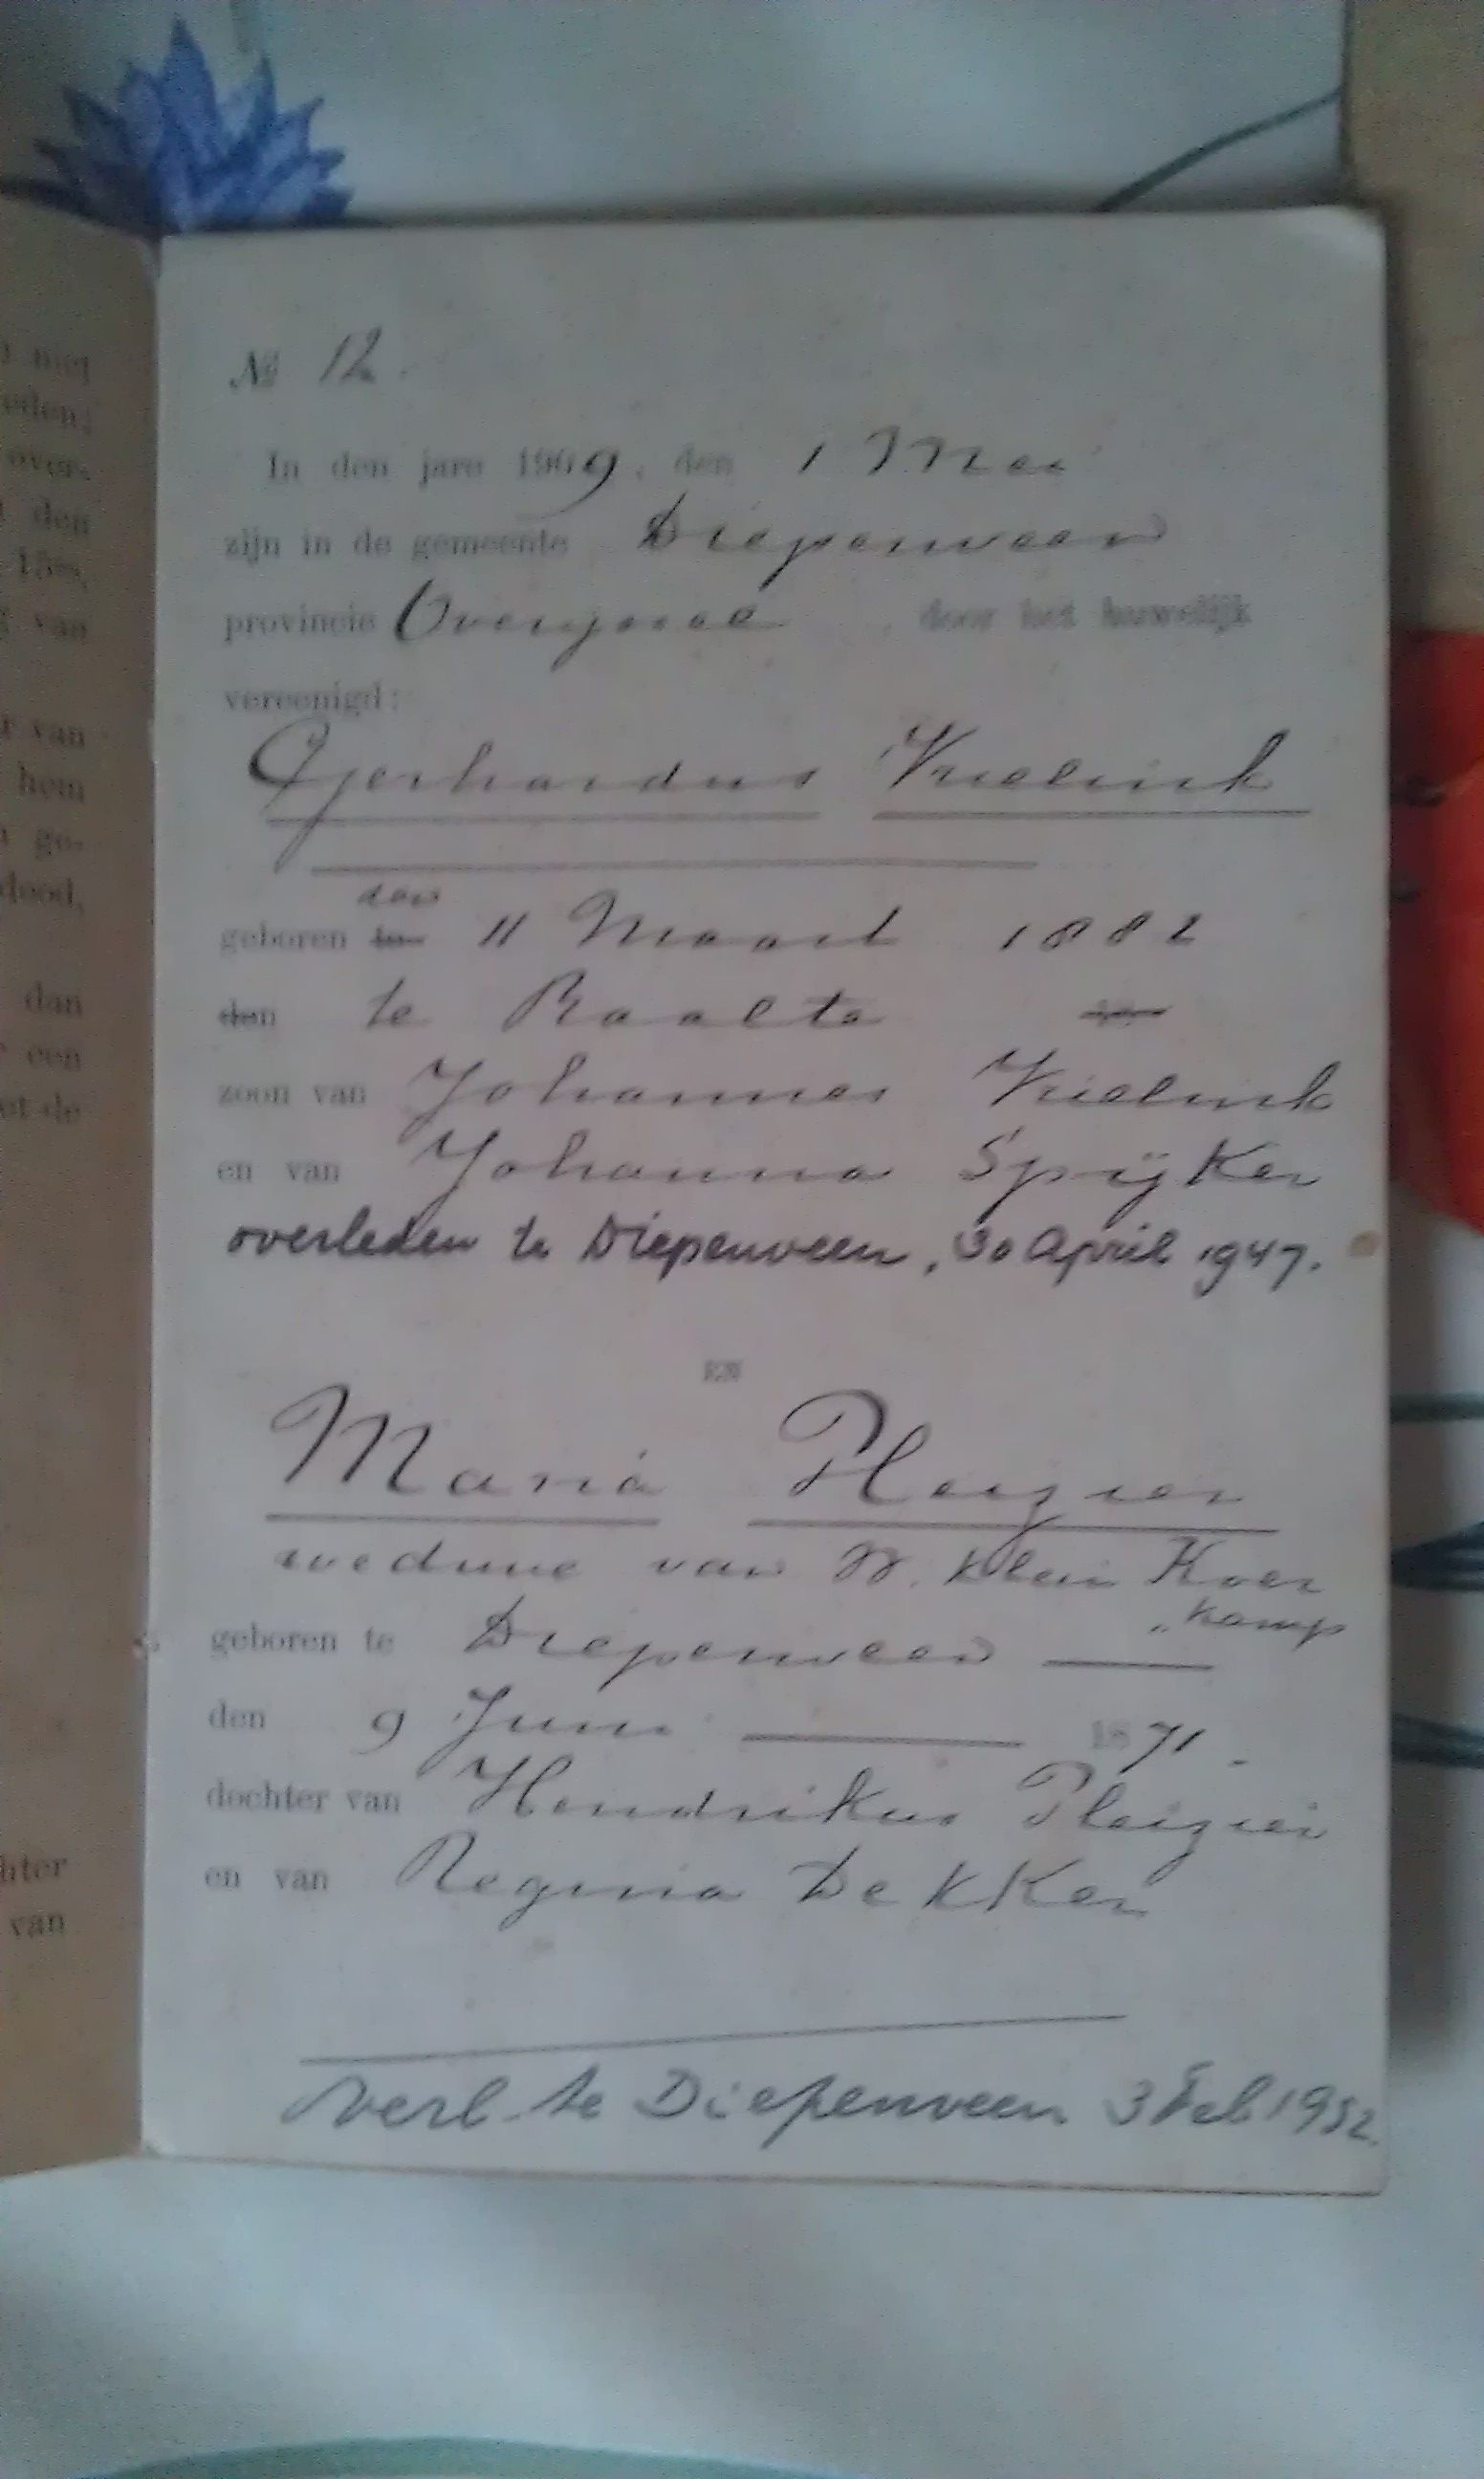 met
eden;
over-
den
van
r van
hem
ge-
dood,
dan
een
et de
hter
van
No 12.
In den jare 1909, den 1 Mei
zijn in de gemeente Diepenveen
provincie Overijssel, door het huwelijk
vereenigd:
Gerhardus Vrielink
den
geboren te 11 Maart 1882
den te Raalte
zoon van Johannes Vrielink
en van Johanna Spijker
overleden te Diepenveen, 30 april 1947.
EN
Maria Pleizier
weduwe van W. Klein Koer
„kamp
geboren te Diepenveen
den 9 Juni 1871.
dochter van Hendrikus Pleizier
en van Regina Dekker
Verl. te Diepenveen 3 Feb 1952.